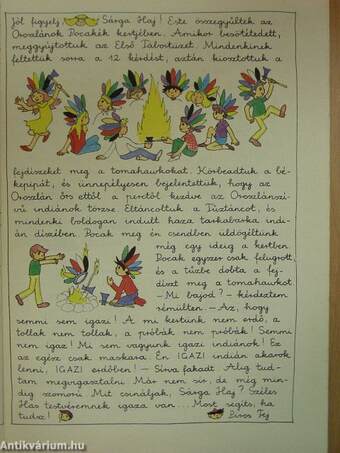 Jól figyelj, Sárga Haj! Este összegyűltek az
Oroszlánok Pocakék kertjében. Amikor besötétedett,
meggyújtottuk az Első Tábortüzet. Mindenkinek
feltettük sorra a 12 kérdést, aztán kiosztottuk a
fejdíszeket meg a tomahawkokat. Körbeadtuk a bé-
kepipát, és ünnepélyesen bejelentettük, hogy az
Oroszlán őrs ettől a perctől kezdve az Oroszlánszí-
vű indiánok törzse. Eltáncoltuk a Tűztáncot, és
mindenki boldogan indult haza tarkabarka indi-
án díszében. Pocak meg én csendben üldögéltünk
még egy ideig a kertben.
Pocak egyszer csak felugrott,
és a tűzbe dobta a fej-
díszét meg a tomahawkot.
– Mi bajod? – kérdeztem
rémülten. – Az, hogy
semmi sem igazi! A mi kertünk nem erdő, a
tollak nem tollak, a próbák nem próbák! Semmi
nem igaz! Mi sem vagyunk igazi indiánok! Ez
az egész csak maskara. Én IGAZI indián akarok
lenni, IGAZI erdőben! – Sírva fakadt. Alig tud-
tam megvigasztalni. Már nem sír, de még min-
dig szomorú. Mit csináljak, Sárga Haj? Széles
Has testvéremnek igaza van... Most segíts, ha
tudsz! Piros Fej
Antikvárium.hu